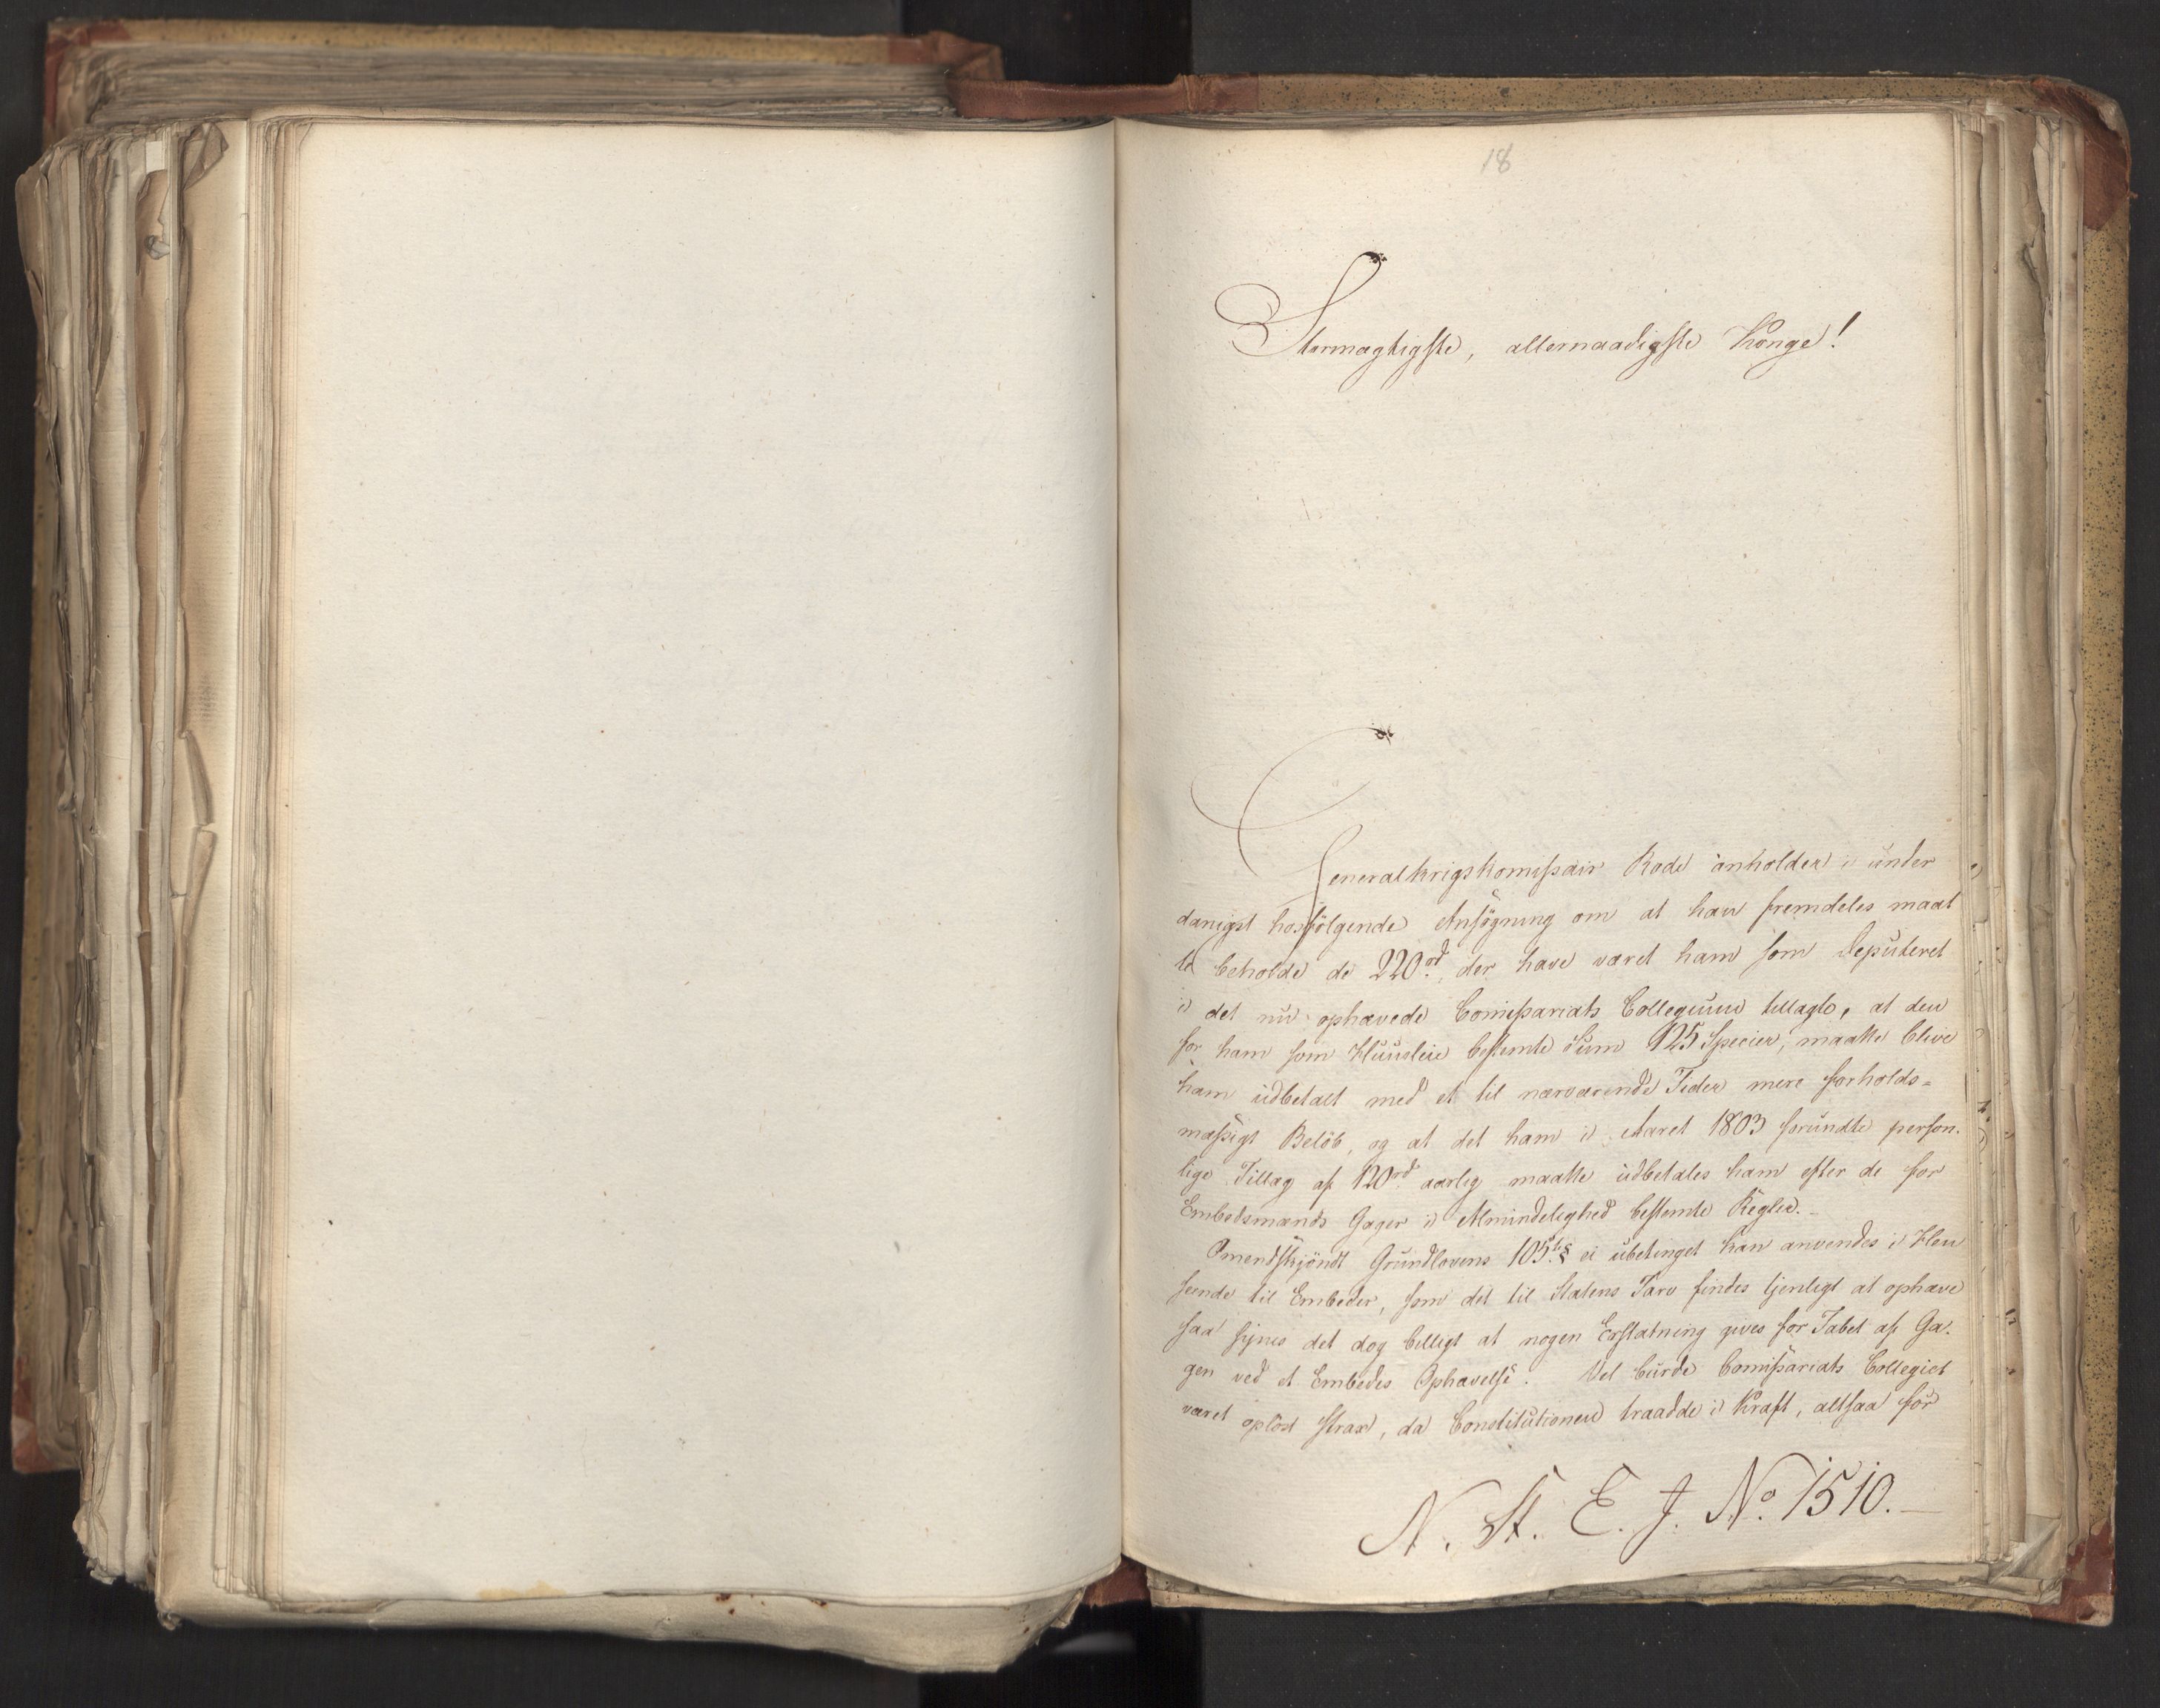 18
Stormægtigste, allernaadigste Konge!
Generalkrigskomissair Rode anholder i under
danigst hosfölgende Ansögning om at han fremdeles maat
te beholde de 220rd, der have været ham som Deputeret
i det nu ophævede Comissariats Collegium tillagte, at den
for ham som Huusleie bestemte Sum 125 Species, maatte blive
ham udbetalt med et til nærværende Tider mere forholds=
mæssigt Belöb, og at det ham i Aaret 1803 forundte person-
lige Tillæg af 120rd aarlig maatte udbetales ham efter de for
Embedsmænds Gager i Almindelighed bestemte Regler. –
Omendskjöndt Grundlovens 105te § ei ubetinget kan anvendes i Hen
seende til Embeder, som det til Statens Tarv findes tjenligt at ophæve
saa synes det dog billigt at nogen Erstatning gives for Tabet af Ga-
gen ved et Embedes Ophævelse. Vel burde Comissariats Collegiet
været oplöst strax, da Constitutionen traadde i Kraft, altsaa for
N. St. E. J. No. 1510. —